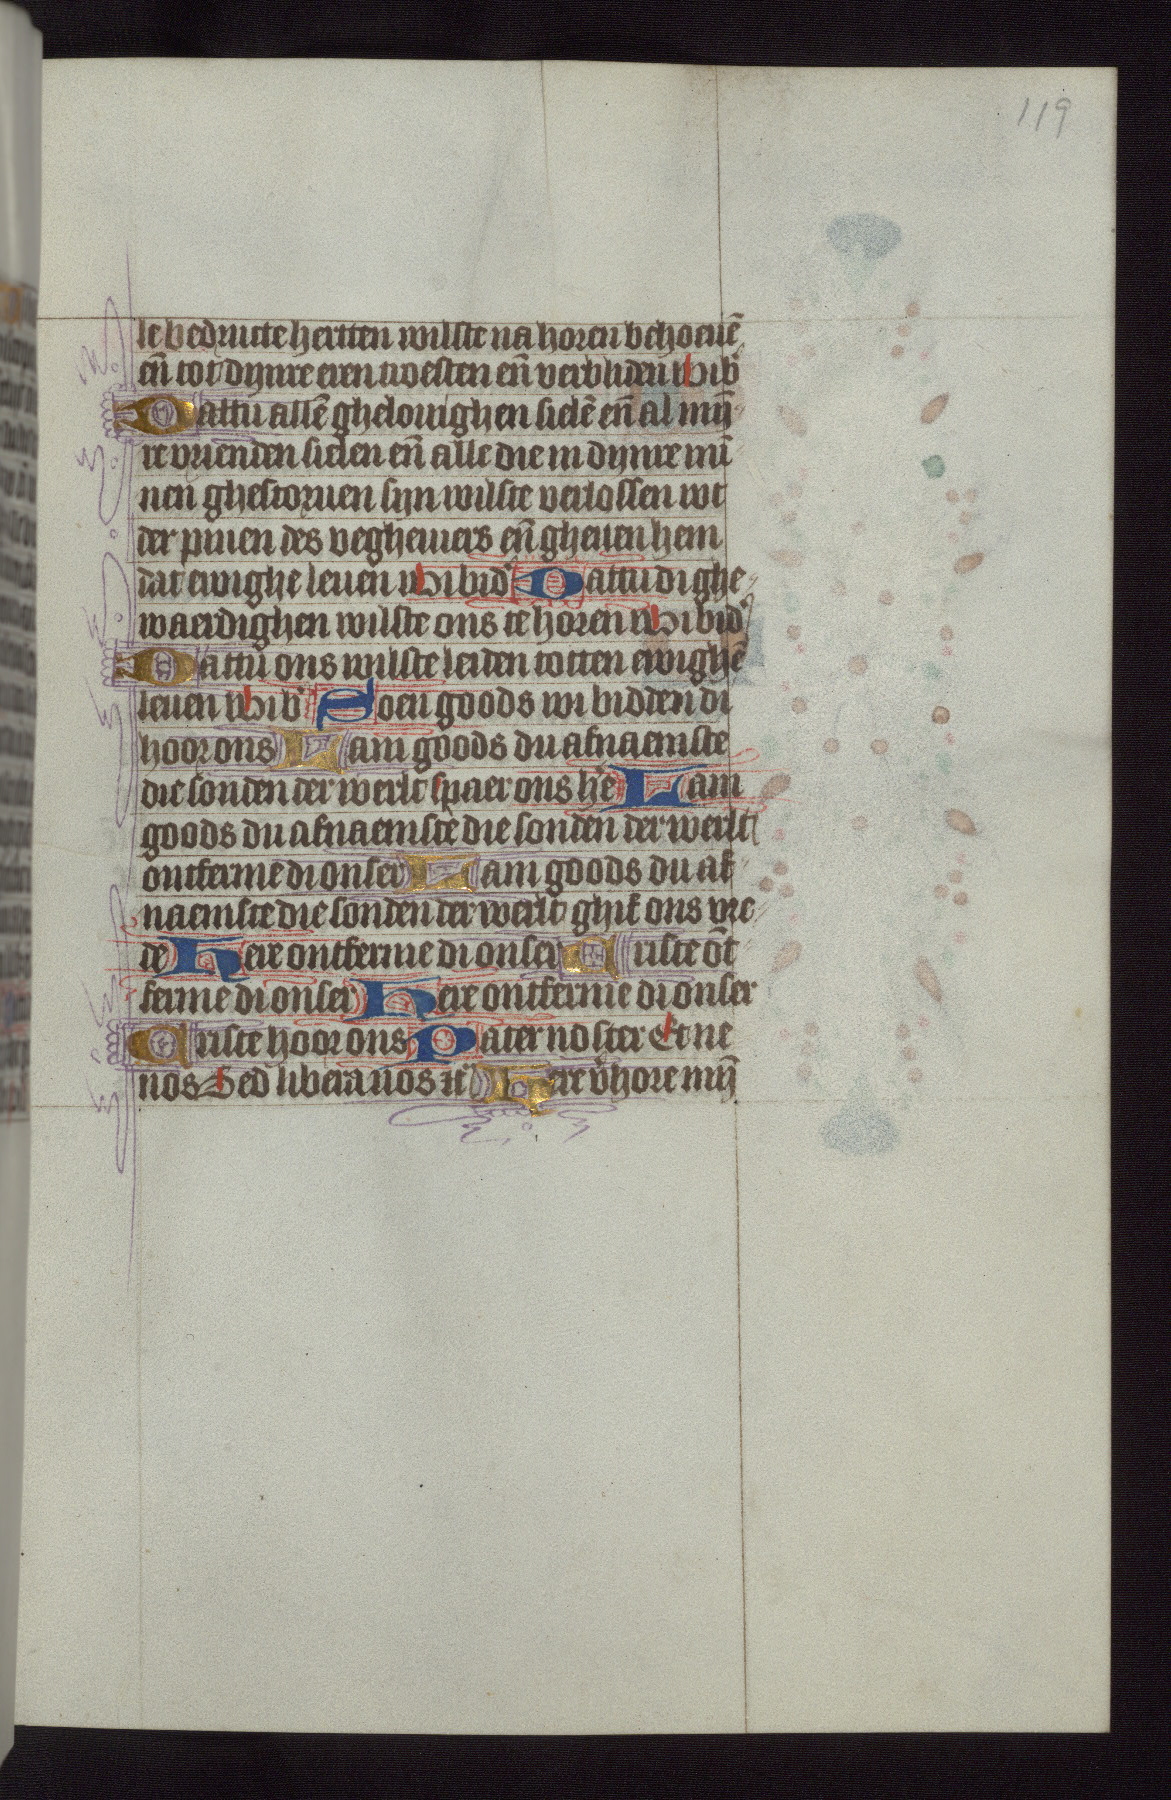 119
le bedructe hertten wilste na horen behoeuē
en̄ tot dynre eren troesten en̄ verbliden Wi b'
Dattu allē ghelouighen sielē en̄ al mȳ
re vrienden sielen en̄ alle die in dynre mī
nen ghestoruen syn wilste verlossen wt
der pinen des veghevuers en̄ gheuen hem
dat ewighe leuen Wi bid' Dattu di ghe
waerdighen wilste ons te horen Wi bid'
Dattu ons wilste leiden totten ewighē
leuen Wi b' Soen goods wi bidden di
hoor ons Lam goods du afnaemste
die sonden der werlt spaer ons h'e Lam
goods du afnaemste die sonden der werlt
ontferme di onser Lam goods du af
naemste die sonden der werlt ghif ons vre
de Here ontferme di onser Criste ōt
ferme di onser Here ontferme di onser
Criste hoor ons Pater noster Et ne
nos Sed libera nos Here v'hore mȳ